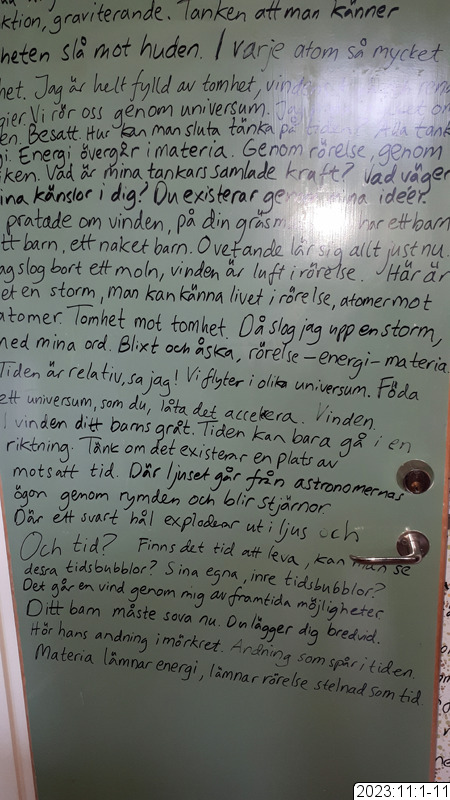 ktion, graviterande. Tanken att man känner
heten slå mot huden. I varje atom så mycket
het. Jag är helt fylld av tomhet,
gier. Vi rör oss genom universum.
en. Besatt. Hur kan man sluta tänka på
gi. Energi övergår i materia. Genom rörelse, genom
iken. Vad är mina tankars samlade kraft? Vad väger
ina känslor i dig? Du existerar genom mina idéer.
pratade om vinden, på din gräsm när ett barn
tt barn, ett naket barn. Ovetande lär sig allt just nu.
ag slog bort ett moln, vinden är luft i rörelse. Här är
et en storm, man kan känna livet i rörelse, atomer mot
atomer. Tomhet mot tomhet. Då slog jag upp en storm,
med mina ord. Blixt och åska, rörelse-energi-materia.
Tiden är relativ, sa jag! Vi flyter i olika universum. Föda
ett universum, som du, låta det accelerera. Vinden.
I vinden ditt barns gråt. Tiden kan bara gå i en
riktning. Tänk om det existerar en plats av
motsatt tid. Där ljuset går från astronomernas
ögon genom rymden och blir stjärnor.
Där ett svart hål exploderar ut i ljus och
Och tid? Finns det tid att leva, kan man se
dessa tidsbubblor? Sina egna, inre tidsbubblor?
Det går en vind genom mig av framtida möjligheter.
Ditt barn måste sova nu. Du lägger dig bredvid.
Hör hans andning i mörkret. Andning som spår i tiden.
Materia lämnar energi, lämnar rörelse stelnad som tid.
2023:11:1-11